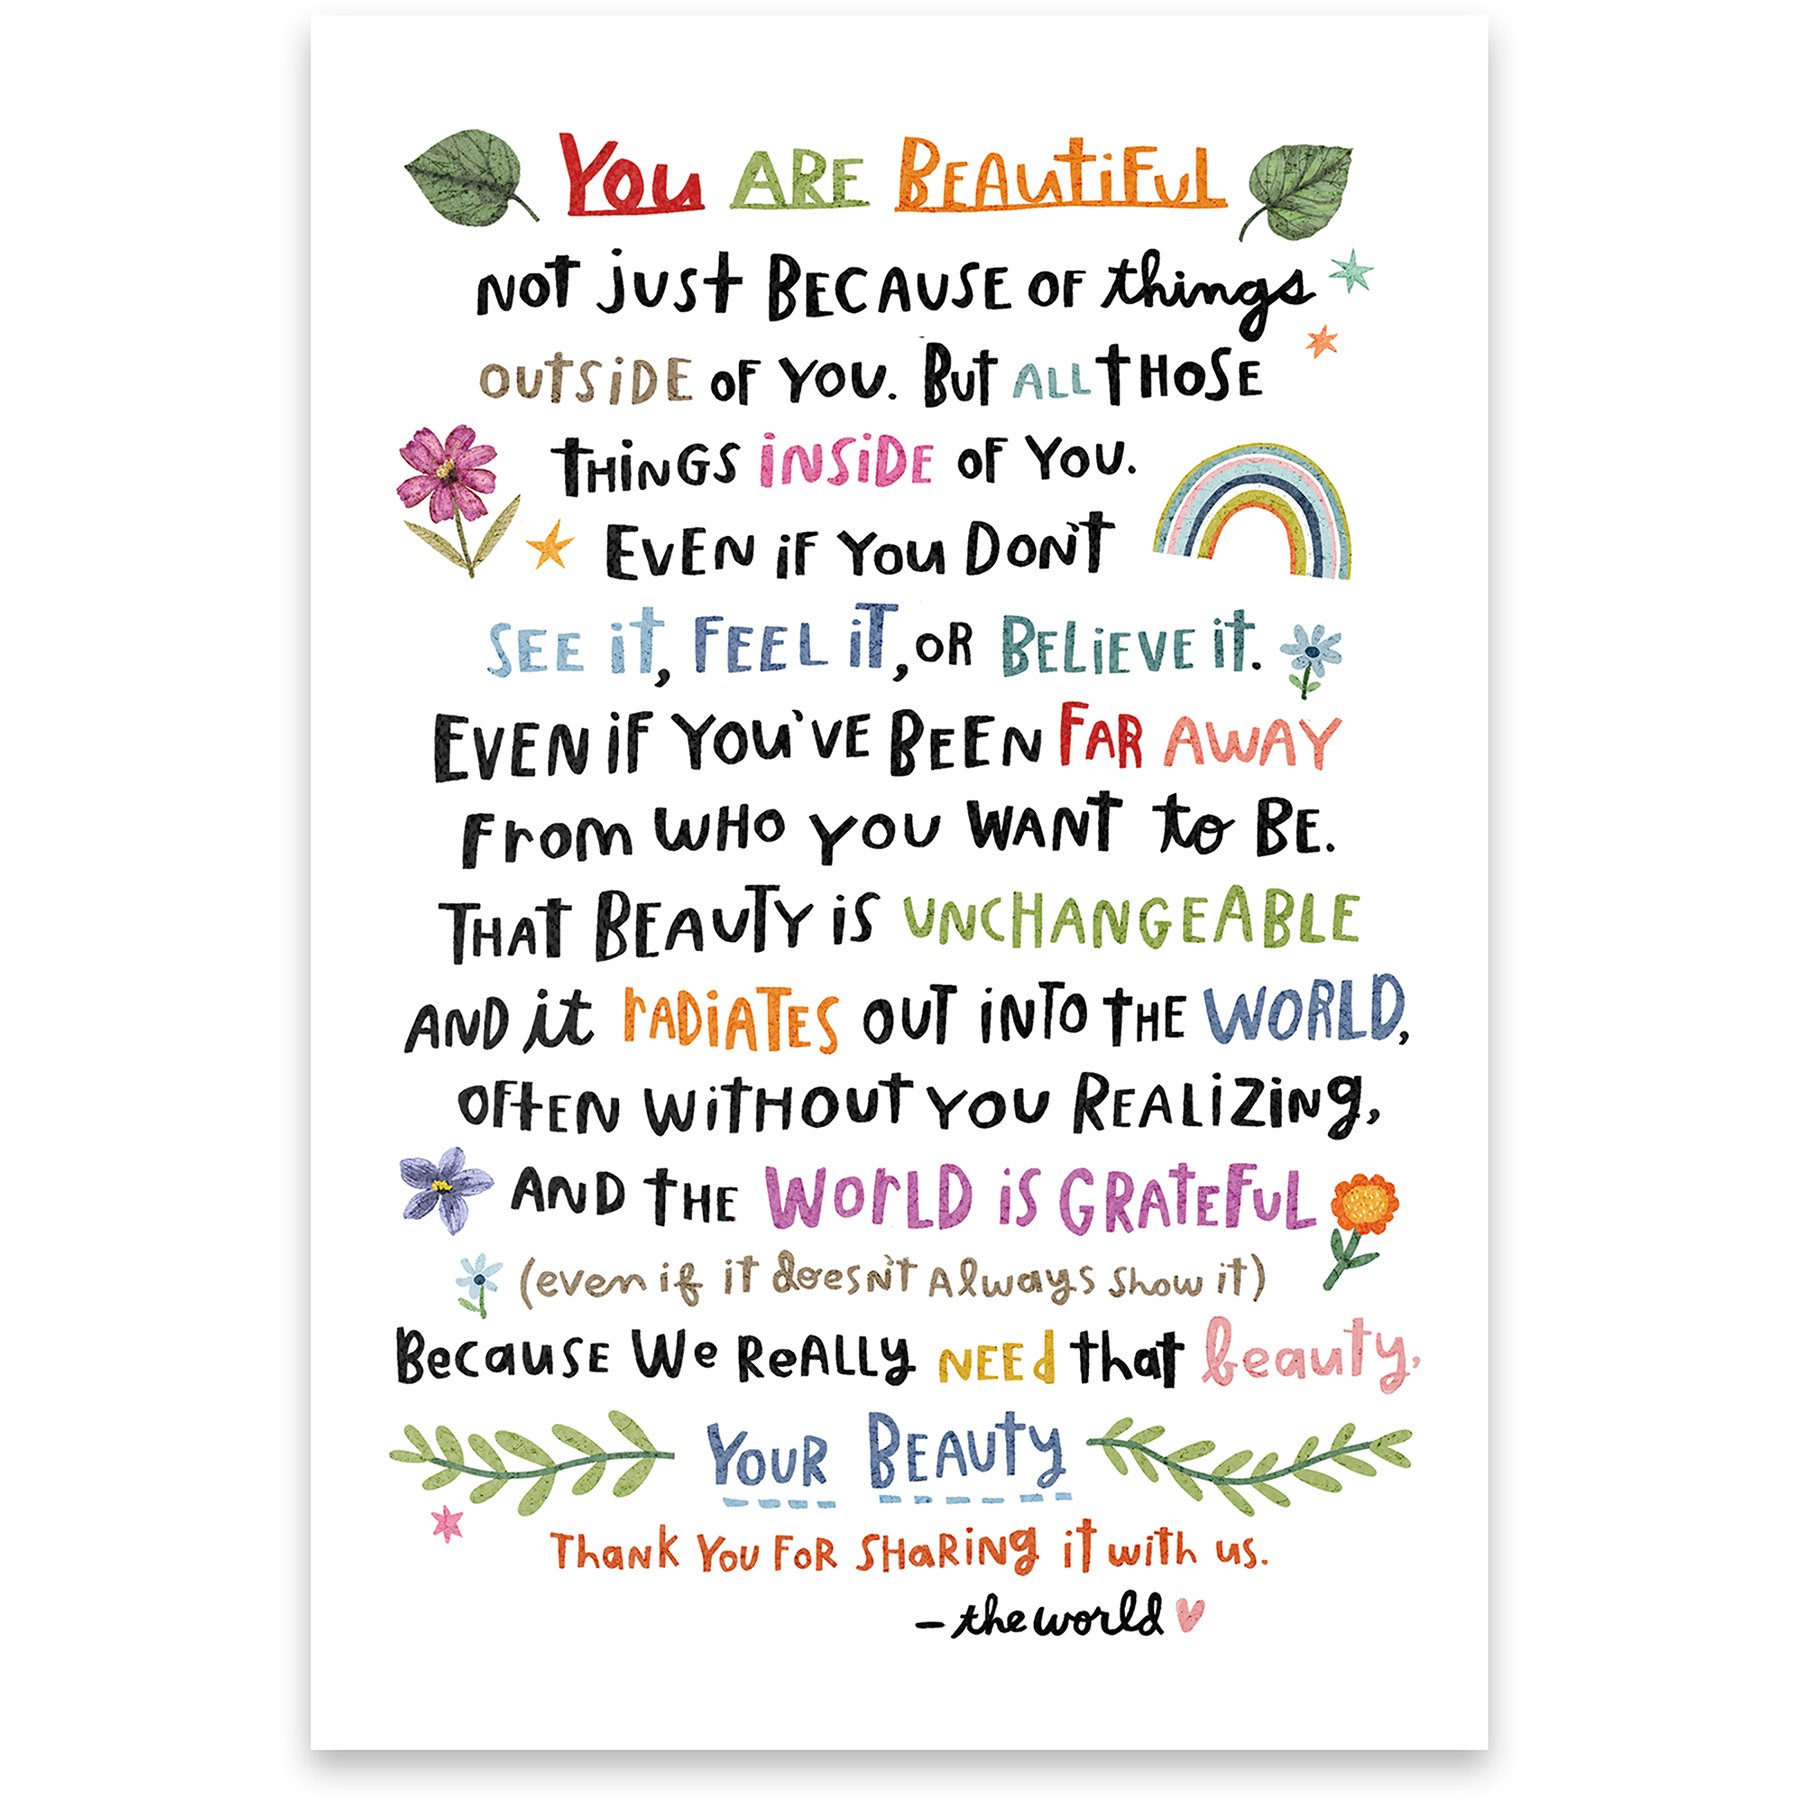 You ARE BEAutiFuL
NOT just BECAUSE OF things
OutSiDE OF YOU. But ALL tHOSE
tHiNGS iNSiDE OF YOU.
EVEN iF You DON'T
SEE it, FEEL iT, OR BELiEVE iT.
EVEN iF YOU'VE BEEN FAR AWAY
From WHO YOU WANT to BE.
THAT BEAUTY iS UNCHANGEABLE
AND it rADiATES OUT iNTO tHE WORLD,
OFtEN WiTHOUT YOU REALiZiNg,
AND tHE WOrLD iS GRATEFUL
(even if it doesn't Always Show it)
BecauSE We ReALLy NEEd that beauty,
YOUR BEAUTy
ThaNK YOU FOR SHaRiNg iT with us.
- the world